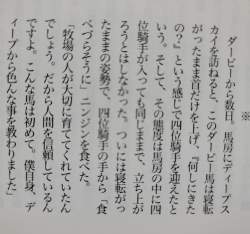 ※
ダービーから数日。馬房にディープス
カイを訪ねると、このダービー馬は寝転
がったまま首だけを上げ、『何しにきた
の？』という感じで四位騎手を迎えたと
いう。そして、その態度は馬房の中に四
位騎手が入っても同じままで、立ち上が
ろうとはしなかった。ついには寝転がっ
たままの姿勢で、四位騎手の手から「食
べづらそうに」ニンジンを食べた。
「牧場の人が大切に育ててくれていたん
でしょう。だから人間を信頼しているん
ですよ。こんな馬は初めて。僕自身、デ
ィープから色んな事を教わりました」